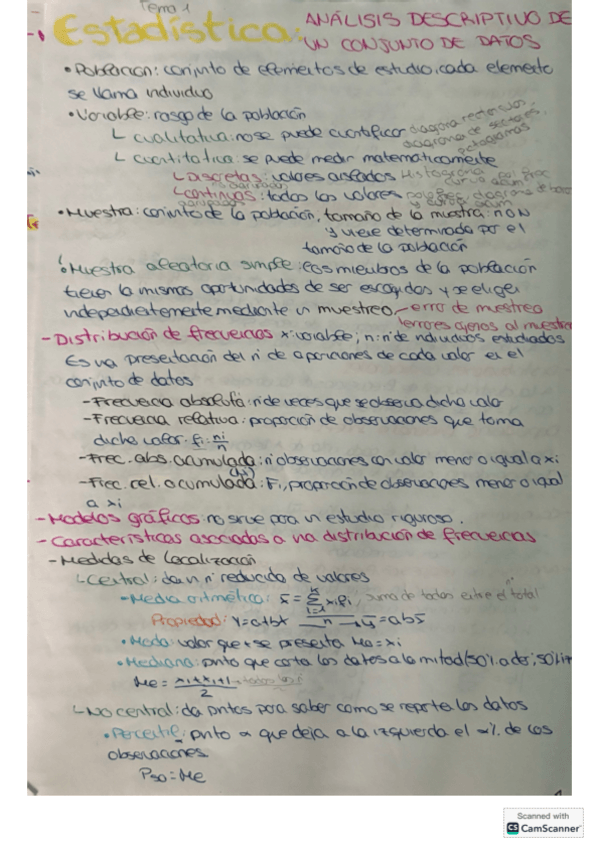 Tema 1
Estadística: ANÁLISIS DESCRIPTIVO DE
UN CONJUNTO DE DATOS
• Población: conjunto de elementos de estudio, cada elemento
se llama individuo
• Variable: rasgo de la población
cualitativa: no se puede cuantificar diagrama rectangular,
diagrama de sectores,
pictogramas
cuantitativa: se puede medir matematicamente
Discretas: valores aislados Histograma
continuas: todos los valores
agrupados
• Muestra: conjunto de la población, tamaño de la muestra: n o N
y viene determinada por el
tamaño de la población
• Muestra aleatoria simple: los miembros de la población
tienen la mismas oportunidades de ser escogidos y se eligen
independientemente mediante un muestreo - error de muestreo
errores ajenos al muestreo
- Distribución de frecuencias x: variable; n: n de individuos estudiados
Es una presentación del nº de apariciones de cada valor en el
conjunto de datos
- Frecuencia absoluta: n de veces que se observa dicho valor
- Frecuencia relativa: proporción de observaciones que toma
dicho valor: fi: ni/n
- Frec. abs. acumulada: n observaciones con valor menor o igual a xi
- Frec. rel. acumulada: Fi, proporción de observaciones menor o igual
a xi
- Modelos gráficos: no sirve para un estudio riguroso.
- Características asociadas a una distribución de frecuencias
- Medidas de localización
Central: da un nº reducido de valores
- Media aritmética: x̄ = Σ xi fi, suma de todos entre el total
Propiedad: y = a+bx → ȳ = a+bx̄
• Moda: valor que + se presenta Mo = xi
• Mediana: punto que corta los datos a la mitad (50% a der, 50%
Me = xi + xi+1 / 2
No central: da puntos para saber como se reparte los datos
• Percentil: punto α que deja a la izquierda el α% de las
observaciones
P50 = Me
Scanned with
CS CamScanner